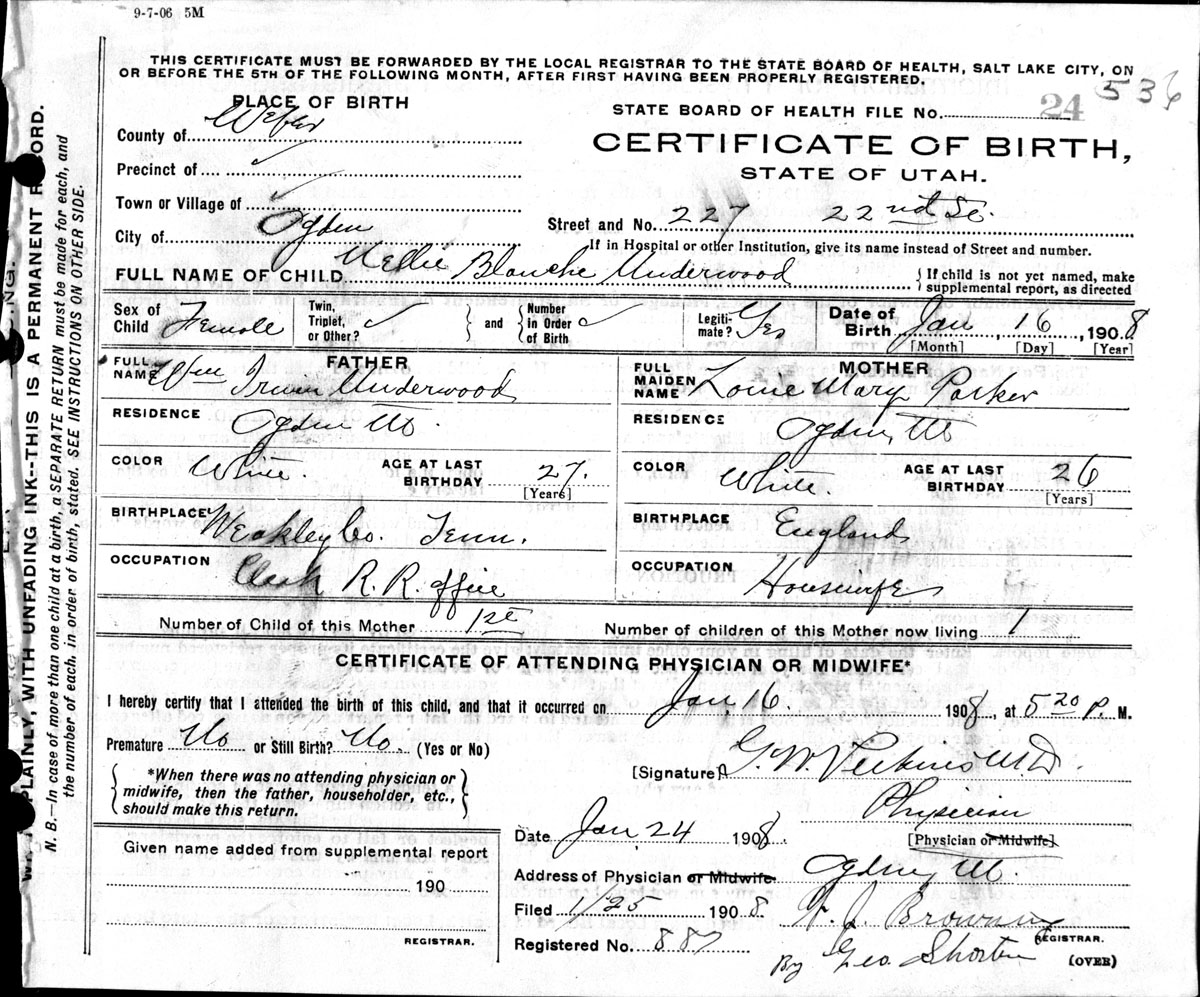 9-7-06 5M
THIS CERTIFICATE MUST BE FORWARDED BY THE LOCAL REGISTRAR TO THE STATE BOARD OF HEALTH, SALT LAKE CITY, ON
OR BEFORE THE 5TH OF THE FOLLOWING MONTH, AFTER FIRST HAVING BEEN PROPERLY REGISTERED.
PLACE OF BIRTH
STATE BOARD OF HEALTH FILE No. 24 536
County of Weber
CERTIFICATE OF BIRTH,
Precinct of
STATE OF UTAH.
Town or Village of
Street and No. 227 22nd St.
City of Ogden
If in Hospital or other Institution, give its name instead of Street and number.
FULL NAME OF CHILD Nellie Blanche Underwood
{If child is not yet named, make
supplemental report, as directed
Sex of Child Female
Twin, Triplet, or Other?
and
Number in Order of Birth
Legiti-mate? Yes
Date of Birth Jan 16, 1908
[Month] [Day] [Year]
FATHER
FULL NAME Wm Irwin Underwood
RESIDENCE Ogden Ut.
COLOR White. AGE AT LAST BIRTHDAY 27.
[Years]
BIRTHPLACE Weakley Co. Tenn.
OCCUPATION Clerk R. R. office
MOTHER
FULL MAIDEN NAME Louie Mary Parker
RESIDENCE Ogden, Ut
COLOR White. AGE AT LAST BIRTHDAY 26
[Years]
BIRTHPLACE England
OCCUPATION Housewife
Number of Child of this Mother 1st Number of children of this Mother now living 1
CERTIFICATE OF ATTENDING PHYSICIAN OR MIDWIFE*
I hereby certify that I attended the birth of this child, and that it occurred on Jan. 16. 1908, at 5 20 P. M.
Premature No or Still Birth? No. (Yes or No)
[Signature] G. W. Perkins M.D.
{*When there was no attending physician or
midwife, then the father, householder, etc.,
should make this return.}
Physician
[Physician or Midwife]
Date Jan. 24 1908.
Given name added from supplemental report
190
REGISTRAR.
Address of Physician or Midwife. Ogden, Ut.
Filed 1/25 1908.
Browning
REGISTRAR.
Registered No. 887
By Geo. Shorten
(OVER)
WRITE PLAINLY, WITH UNFADING INK--THIS IS A PERMANENT RECORD.
N. B.—In case of more than one child at a birth, a SEPARATE RETURN must be made for each, and
the number of each, in order of birth, stated. SEE INSTRUCTIONS ON OTHER SIDE.